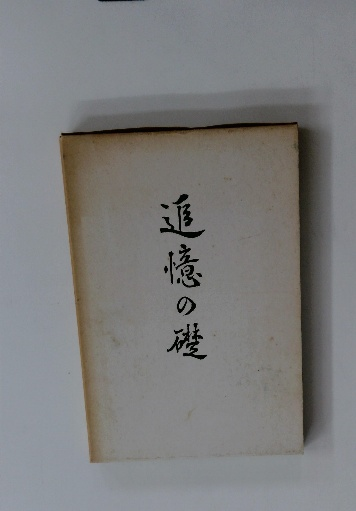 追憶の礎